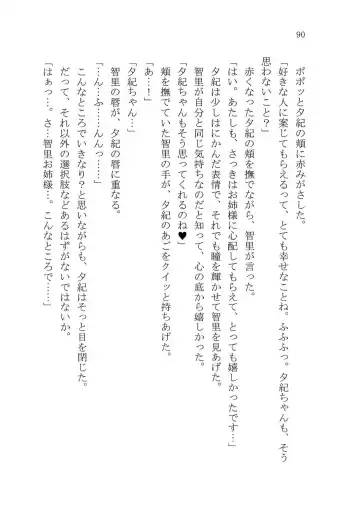 90
ポポッと夕紀の頬に赤みがさした。
「好きな人に案じてもらえるって、とても幸せなことね。ふふふっ。夕紀ちゃんも、そう
思わないこと？」
赤くなった夕紀の頬を撫でながら、智里が言った。
「はい。あたしも、さっきはお姉様に心配してもらえて、とっても嬉しかったです…」
夕紀は少しはにかんだ表情で、それでも瞳を輝かせて智里を見あげた。
智里が自分と同じ気持ちなのだと知って、心の底から嬉しかった。
「夕紀ちゃんもそう思ってくれるのね♥」
頬を撫でていた智里の手が、夕紀のあごをクイッと持ちあげた。
「あ…！」
智里の唇が、夕紀の唇に重なる。
「…ん…ふ……んんっ……」
こんなところでいきなり？と思いながらも、夕紀はそっと目を閉じた。
だって、それ以外の選択肢などあるはずがないではないか。
「はぁっ…。さ…智里お姉様…。こんなところで……」